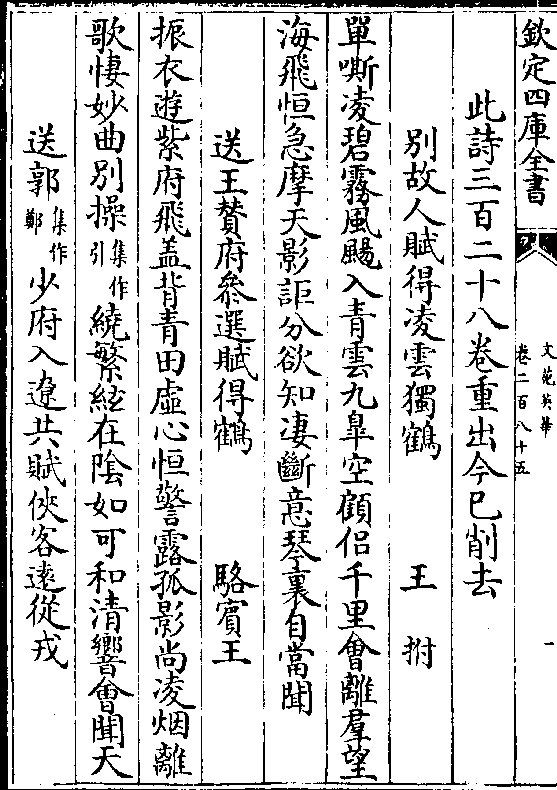 欽定四庫全書
文苑英華
卷二百八十五
一
此詩三百二十八卷重出今已削去
別故人賦得凌雲獨鶴 王拊
單嘶凌碧霧風颺入青雲九皐空顧侣千里會離羣望
海飛恒急摩天影詎分欲知凄斷意琴裏自當聞
送王賛府參選賦得鶴 駱賓王
振衣遊紫府飛盖背青田虛心恒警露孤影尚凌烟離
歌悽妙曲别操集作引繞繁絃在隂如可和清響會聞天
送郭集作鄭少府入遼共賦俠客逺從戎